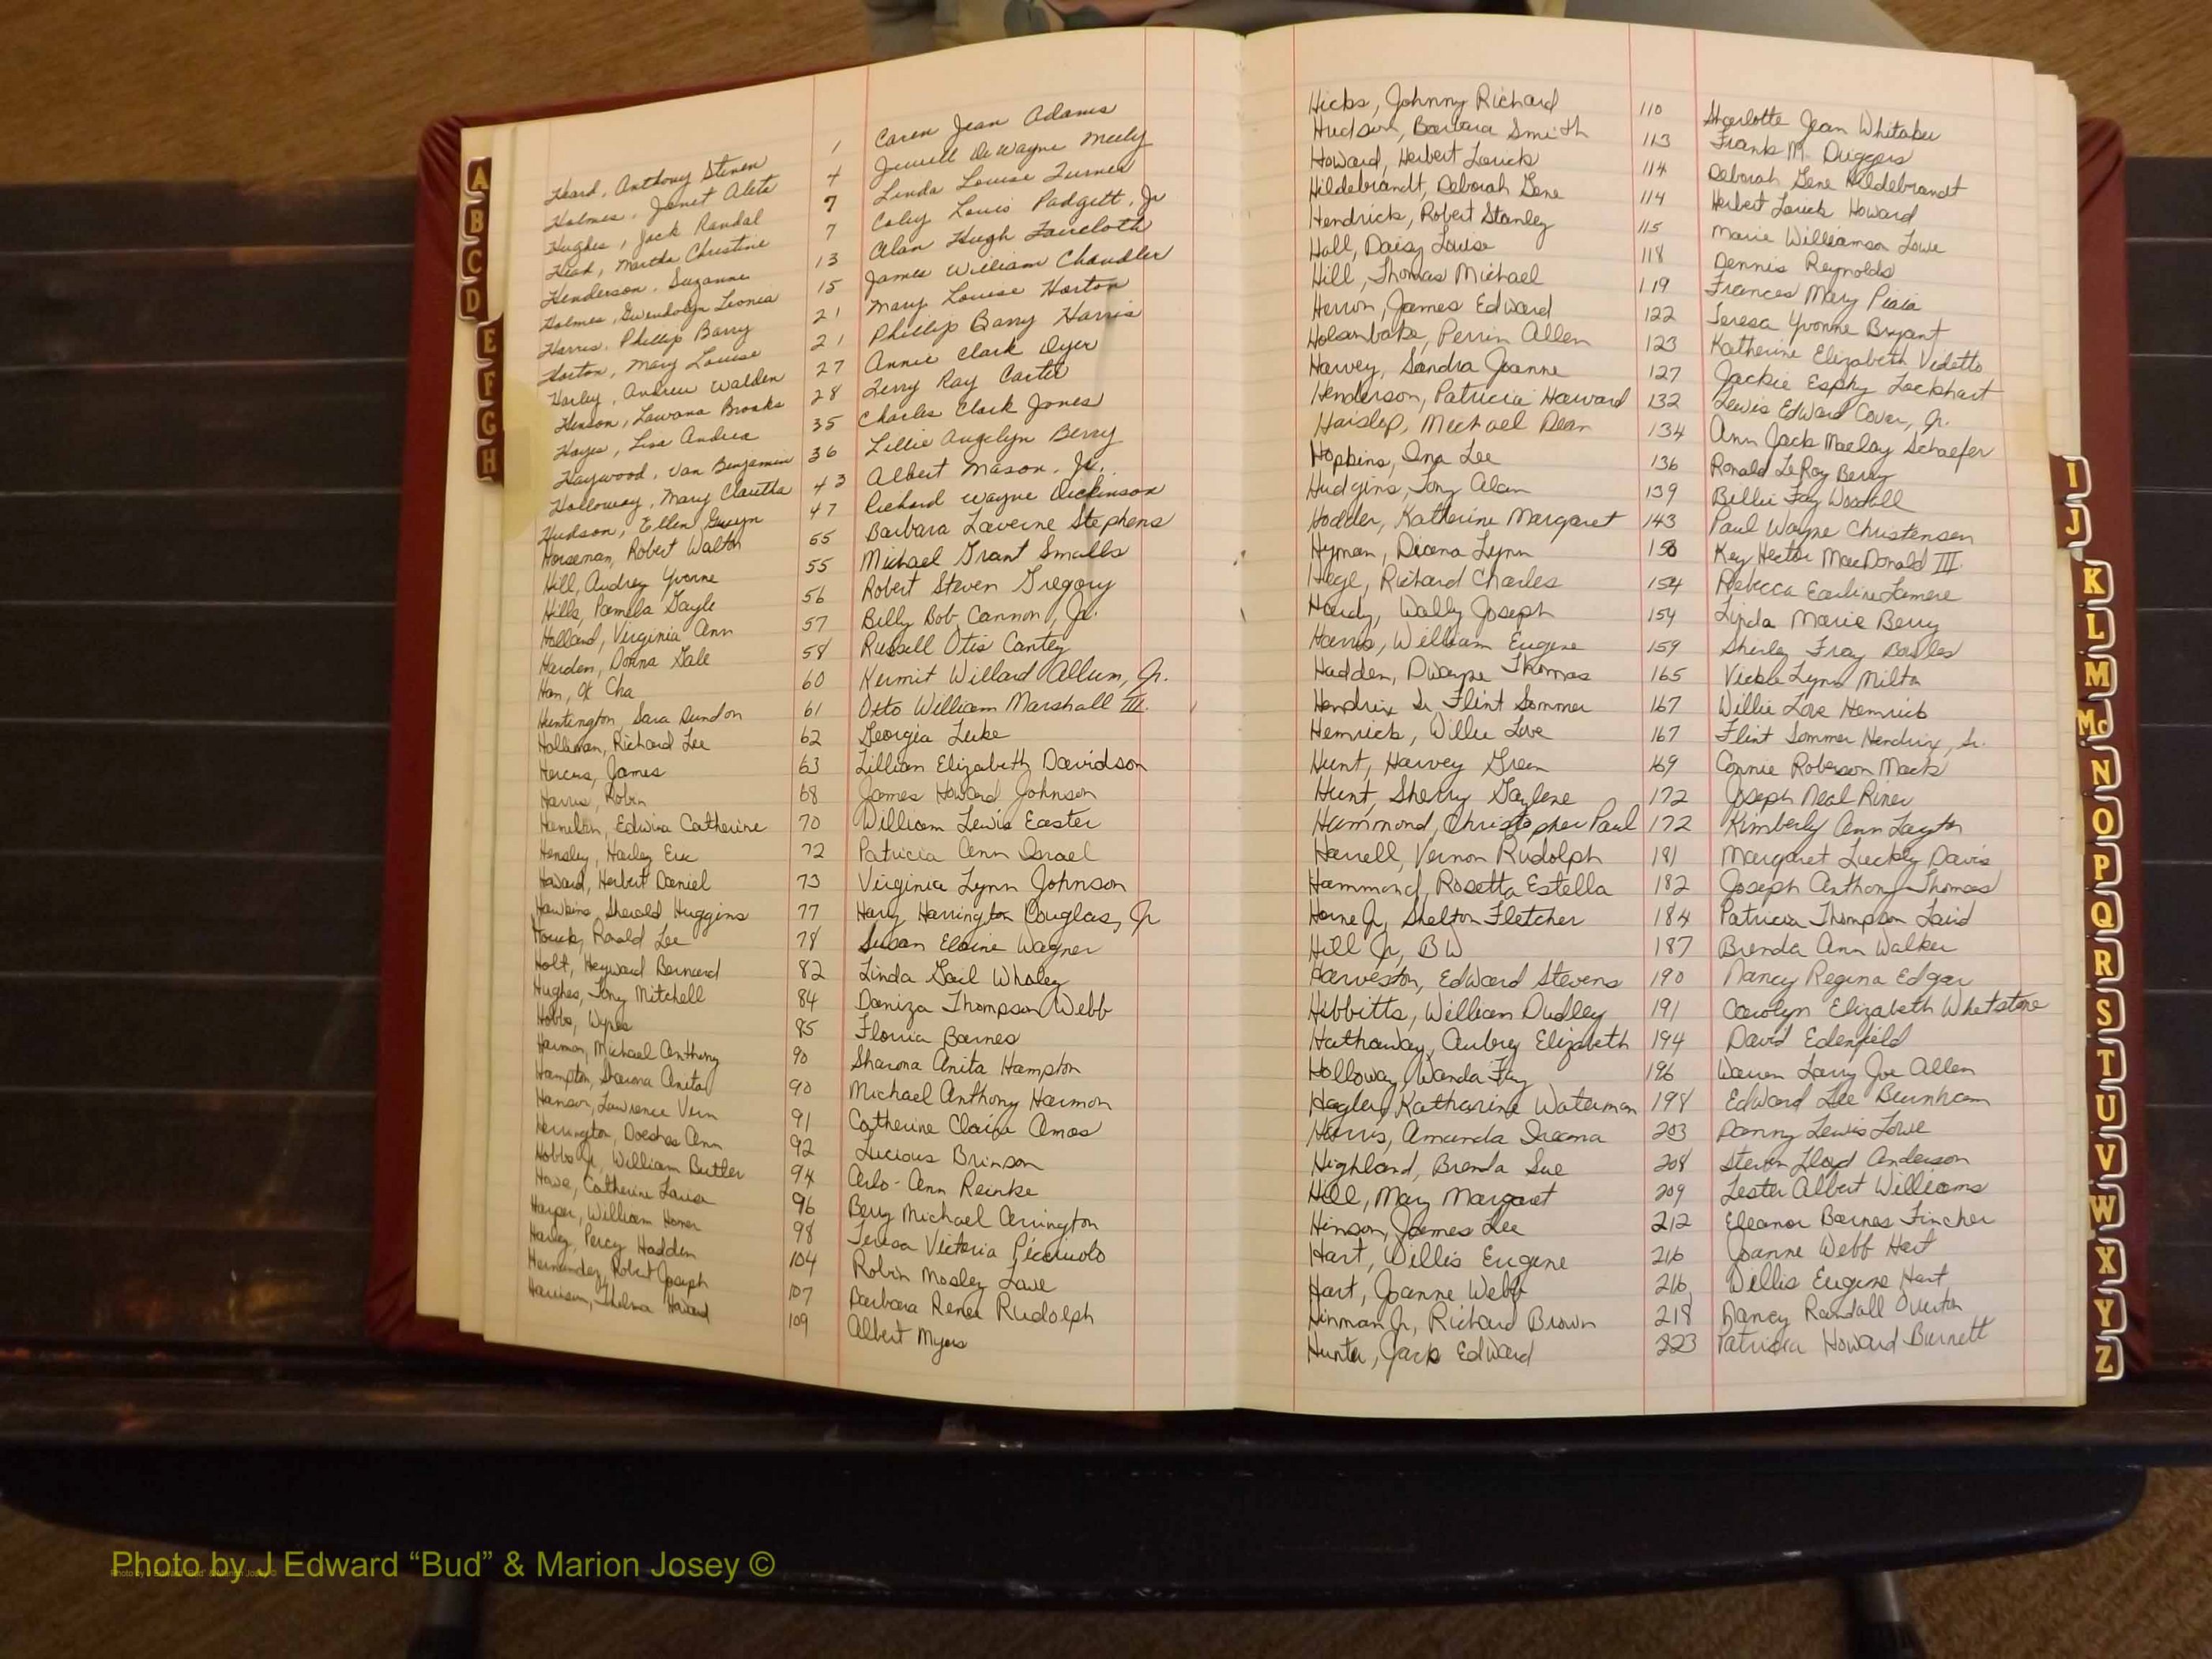 Heard, Anthony Steven 1 Caren Jean Adams
Holmes, Janet Aleta 4 Jewell DeWayne Meely
Hughes, Jack Randal 7 Linda Louise Turner
Head, Martha Christine 7 Coley Louis Padgett, Jr
Henderson, Suzanne 13 Alan Hugh Faircloth
Holmes, Gwendolyn Leonia 15 James William Chandler
Harris, Phillip Barry 21 Mary Louise Horton
Horton, Mary Louise 21 Phillip Barry Harris
Harley, Andrew Walden 27 Annie Clark Dyer
Henson, Lawana Brooks 28 Terry Ray Carter
Hayes, Lisa Andrea 35 Charles Clark Jones
Haywood, Van Benjamin 36 Lillie Angelyn Berry
Holloway, Mary Claritha 43 Albert Mason, Jr.
Hudson, Ellen Gwyn 47 Richard Wayne Dickinson
Horseman, Robert Walton 55 Barbara Laverne Stephens
Hill, Audrey Yvonne 55 Michael Grant Smalls
Hills, Pamela Gayle 56 Robert Steven Gregory
Holland, Virginia Ann 57 Billy Bob Cannon, Jr.
Harden, Donna Gale 58 Russell Otis Cantey
Han, Ok Cha 60 Kermit Willard Allum, Jr.
Huntington, Sara Dundon 61 Otto William Marshall III.
Holliman, Richard Lee 62 Georgia Luke
James 63 Lillian Elizabeth Davidson
Harris, Robin 68 James Howard Johnson
Edwina Catherine 70 William Lewis Easter
Hensley, Harley Eric 72 Patricia Ann Israel
Howard, Herbert Daniel 73 Virginia Lynn Johnson
Hawkins, Sherald Huggins 77 Harry Harrington Douglas, Jr
Ronald Lee 78 Susan Elaine Wagner
Holt, Heyward Bernard 82 Linda Gail Whaley
Hughes, Tony Mitchell 84 Daniza Thompson Webb
Hobbs, 85 Florria Barnes
Harmon, Michael Anthony 90 Sharona Anita Hampton
Hampton, Sharona Anita 90 Michael Anthony Harmon
Hanson, Lawrence Vern 91 Catherine Claira Amos
Herrington, Doeshes Ann 92 Lucious Brinson
Hobbs Jr, William Butler 94 Arlo-Ann Reinke
Howe, Catherine Louisa 96 Berry Michael Arrington
Harper, William Homer 98 Teresa Victoria Picciuolo
Harley, Percy Hadden 104 Robin Mosley Lowe
Hernandez, Robert Joseph 107 Barbara Renea Rudolph
Harrison, Thelma Howard 109 Albert Myers
Hicks, Johnny Richard 110 Sharlotte Jean Whitaker
Hudson, Barbara Smith 113 Frank M. Driggers
Howard, Herbert Lorick 114 Deborah Gene Hildebrandt
Hildebrandt, Deborah Gene 114 Herbert Lorick Howard
Hendricks, Robert Stanley 115 Marie Williamson Lowe
Hall, Daisy Louise 118 Dennis Reynolds
Hill, Thomas Michael 119 Frances Mary Piaia
Herron, James Edward 122 Teresa Yvonne Bryant
Holsenbake, Perrin Allen 123 Katherine Elizabeth Videtto
Harvey, Sandra Joanne 127 Jackie Esphy Lockhart
Henderson, Patricia Howard 132 Lewis Edward Cover, Jr.
Haislip, Michael Dean 134 Ann Jack MacLay Schaefer
Hopkins, Ina Lee 136 Ronald LeRoy Berry
Hudgins, Tony Alan 139 Billie Fay Woodall
Hodder, Katherine Margaret 143 Paul Wayne Christensen
Hyman, Diana Lynn 150 Key Hector MacDonald III.
Hege, Richard Charles 154 Rebecca Earline Lamere
Hardy, Wally Joseph 154 Linda Marie Berry
Harris, William Eugene 159 Shirley Fray Bowles
Hadden, Dwayne Thomas 165 Vickie Lynn Milton
Hendrix Sr, Flint Sommer 167 Willie Love Hemrick
Hemrick, Willie Love 167 Flint Sommer Hendrix, Sr.
Hunt, Harvey Green 169 Connie Roberson Mack
Hunt, Sherry Gaylene 172 Joseph Neal Riner
Hammond, Christopher Paul 172 Kimberly Ann Layton
Harrell, Vernon Rudolph 181 Margaret Luckey Davis
Hammond, Rosetta Estella 182 Joseph Anthony Thomas
Horne Jr, Shelton Fletcher 184 Patricia Thompson Laird
Hill Jr, B W 187 Brenda Ann Walker
Harveston, Edward Stevens 190 Nancy Regina Edgar
Hibbitts, William Dudley 191 Carolyn Elizabeth Whetstone
Hathaway, Aubrey Elizabeth 194 David Edenfield
Holloway, Wanda Fay 196 Warren Larry Joe Allen
Hagler, Katharine Waterman 198 Edward Lee Burnham
Harris, Amanda Dreama 203 Danny Lewis Lowe
Highland, Brenda Sue 208 Steven Lloyd Anderson
Hill, Mary Margaret 209 Lester Albert Williams
Hinson, James Lee 212 Eleanor Barnes Fincher
Hart, Willis Eugene 216 Joanne Webb Hart
Hart, Joanne Webb 216 Willis Eugene Hart
Hinman Jr, Richard Brown 218 Nancy Randall Overton
Hunter, Jack Edward 223 Patricia Howard Burnett
A
B
C
D
E
F
G
H
I
J
K
L
M
Mc
N
O
P
Q
R
S
T
U
V
W
X
Y
Z
Photo by J Edward “Bud” & Marion Josey ©